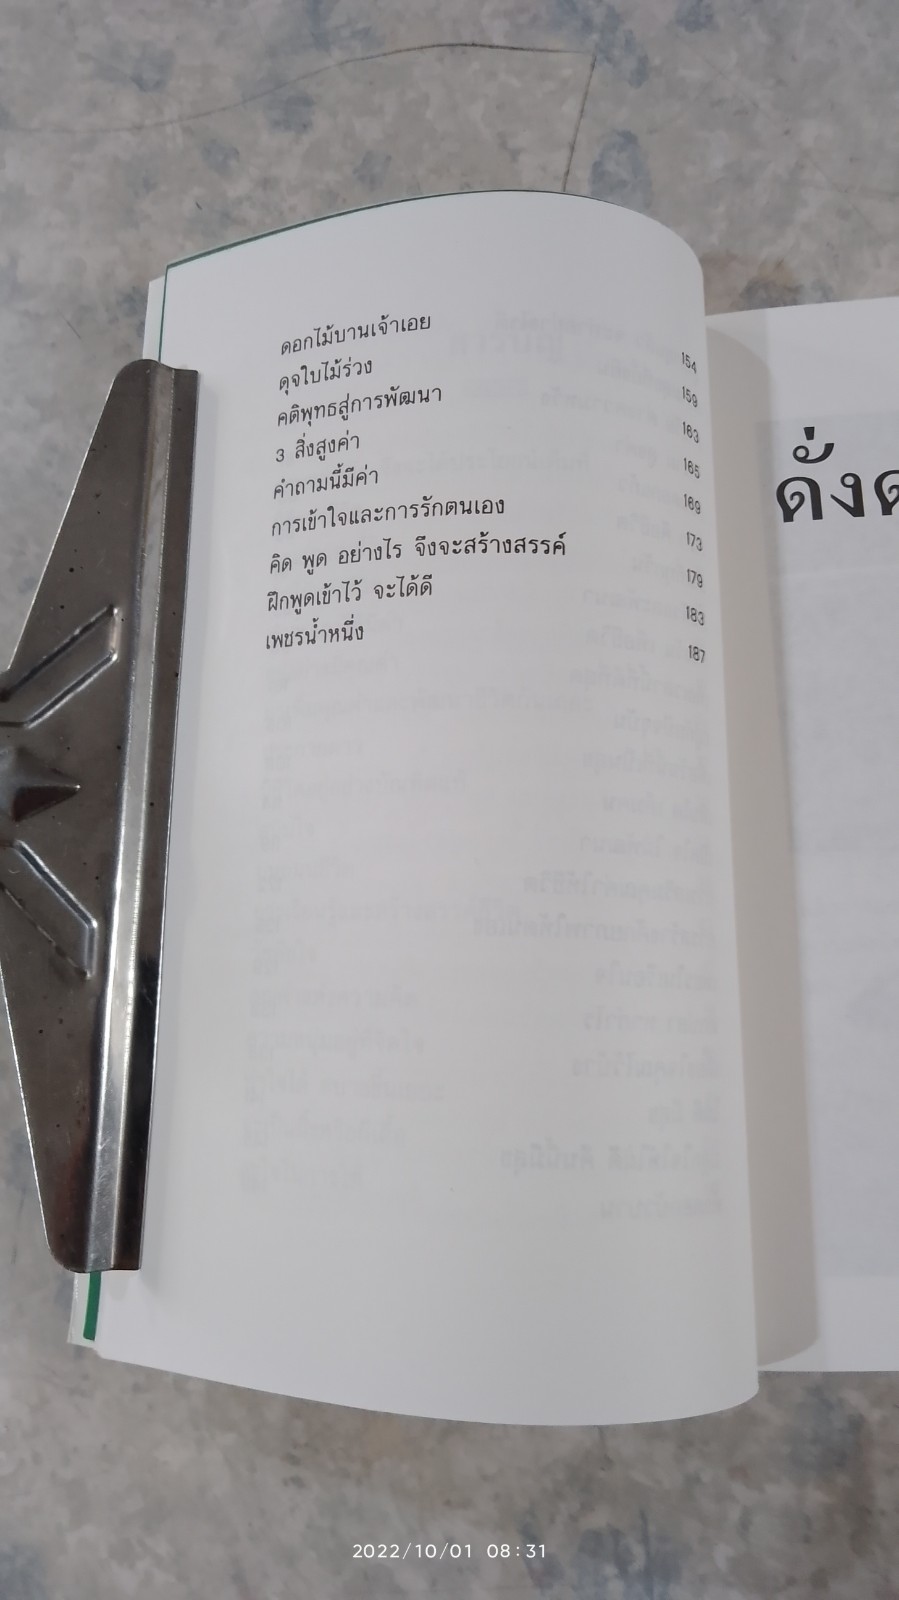 ดอกไม้บานเจ้าเอย 154
ดุจใบไม้ร่วง 159
คติพุทธสู่การพัฒนา 163
3 สิ่งสูงค่า 165
คำถามนี้มีค่า 169
การเข้าใจและการรักตนเอง 173
คิด พูด อย่างไร จึงจะสร้างสรรค์ 179
ฝึกพูดเข้าไว้ จะได้ดี 183
เพชรน้ำหนึ่ง 187
ดั่งด
2022/10/01 08:31